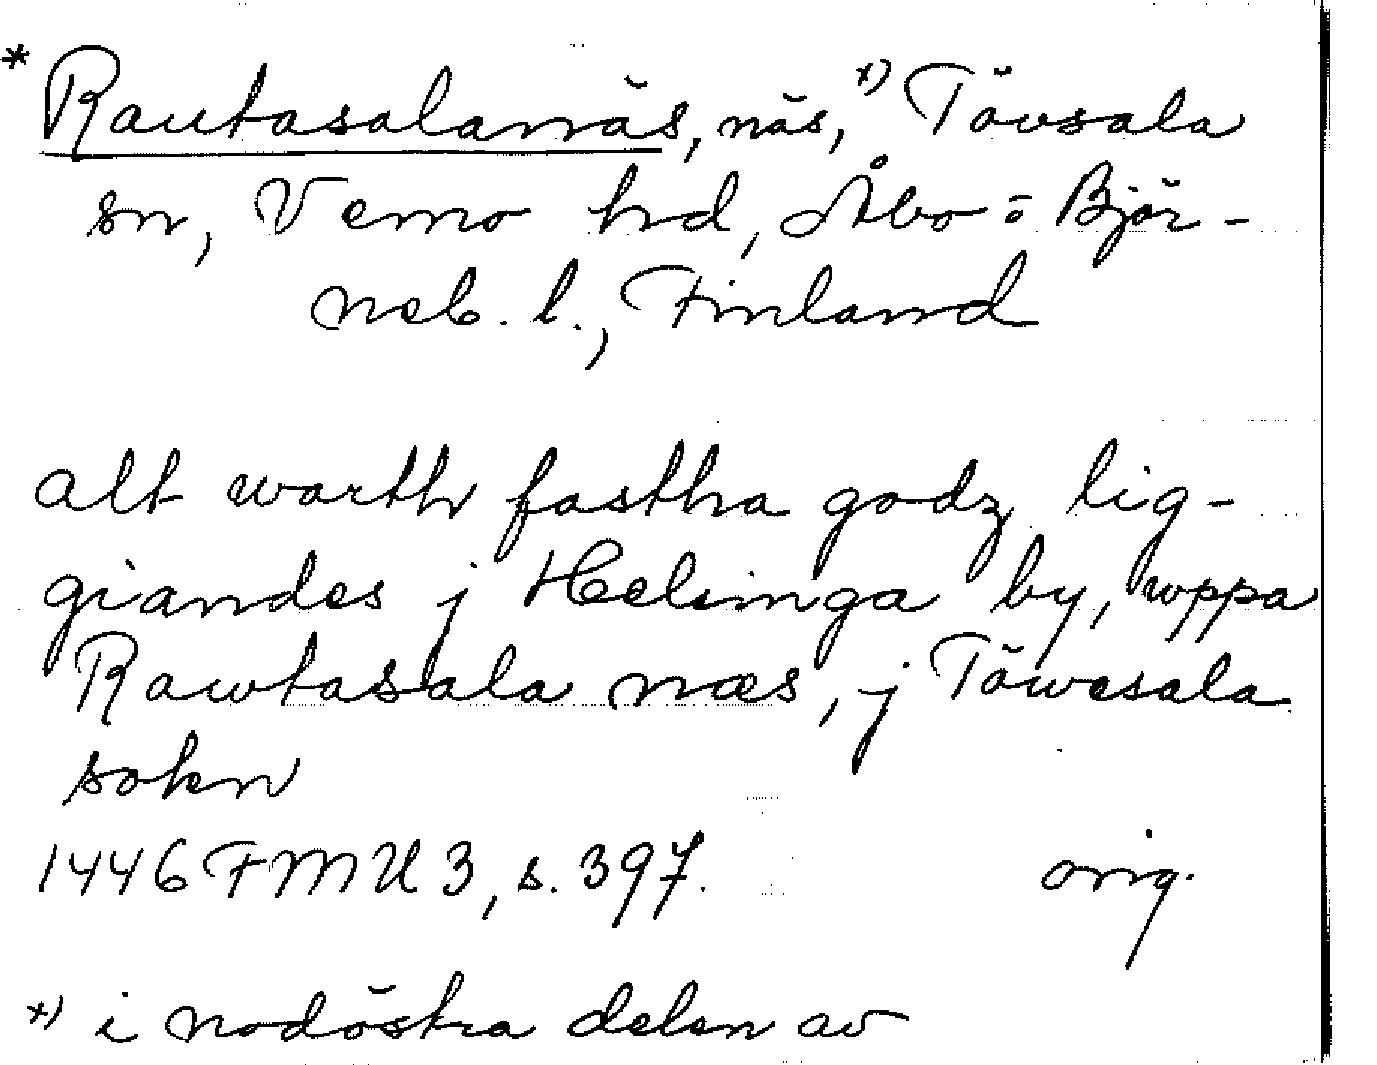 * Rautasalanäs, näs, *) Tövsala
sn, Vemo hd, Åbo = Björ-
neb. l., Finland
alt warth fastha godz lig-
giandes j Helsinga by, wppa
Rawtasala næs, j Töwesala
sokn
1446 FMU 3, s. 397. orig.
*) i nodöstra delen av